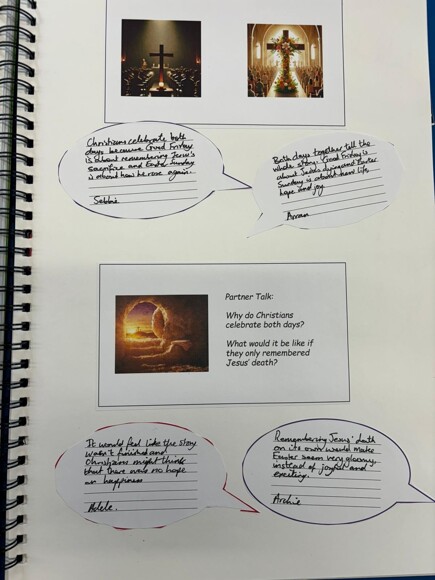 Christians celebrate both
days because Good Friday
is about remembering Jesus's
sacrifice and Easter Sunday
is about how he rose again.
Sebbie
Both days together tell the
whole story. Good Friday is
about Jesus dying and Easter
Sunday is about new life,
hope and joy
Arran
Partner Talk:
Why do Christians
celebrate both days?
What would it be like if
they only remembered
Jesus' death?
It would feel like the story
wasn't finished and
Christians might think
that there were no hope
or happiness
Adele.
Remembering Jesus' death
on its own would make
Easter seem very gloomy
instead of joyful and
exciting.
Archie